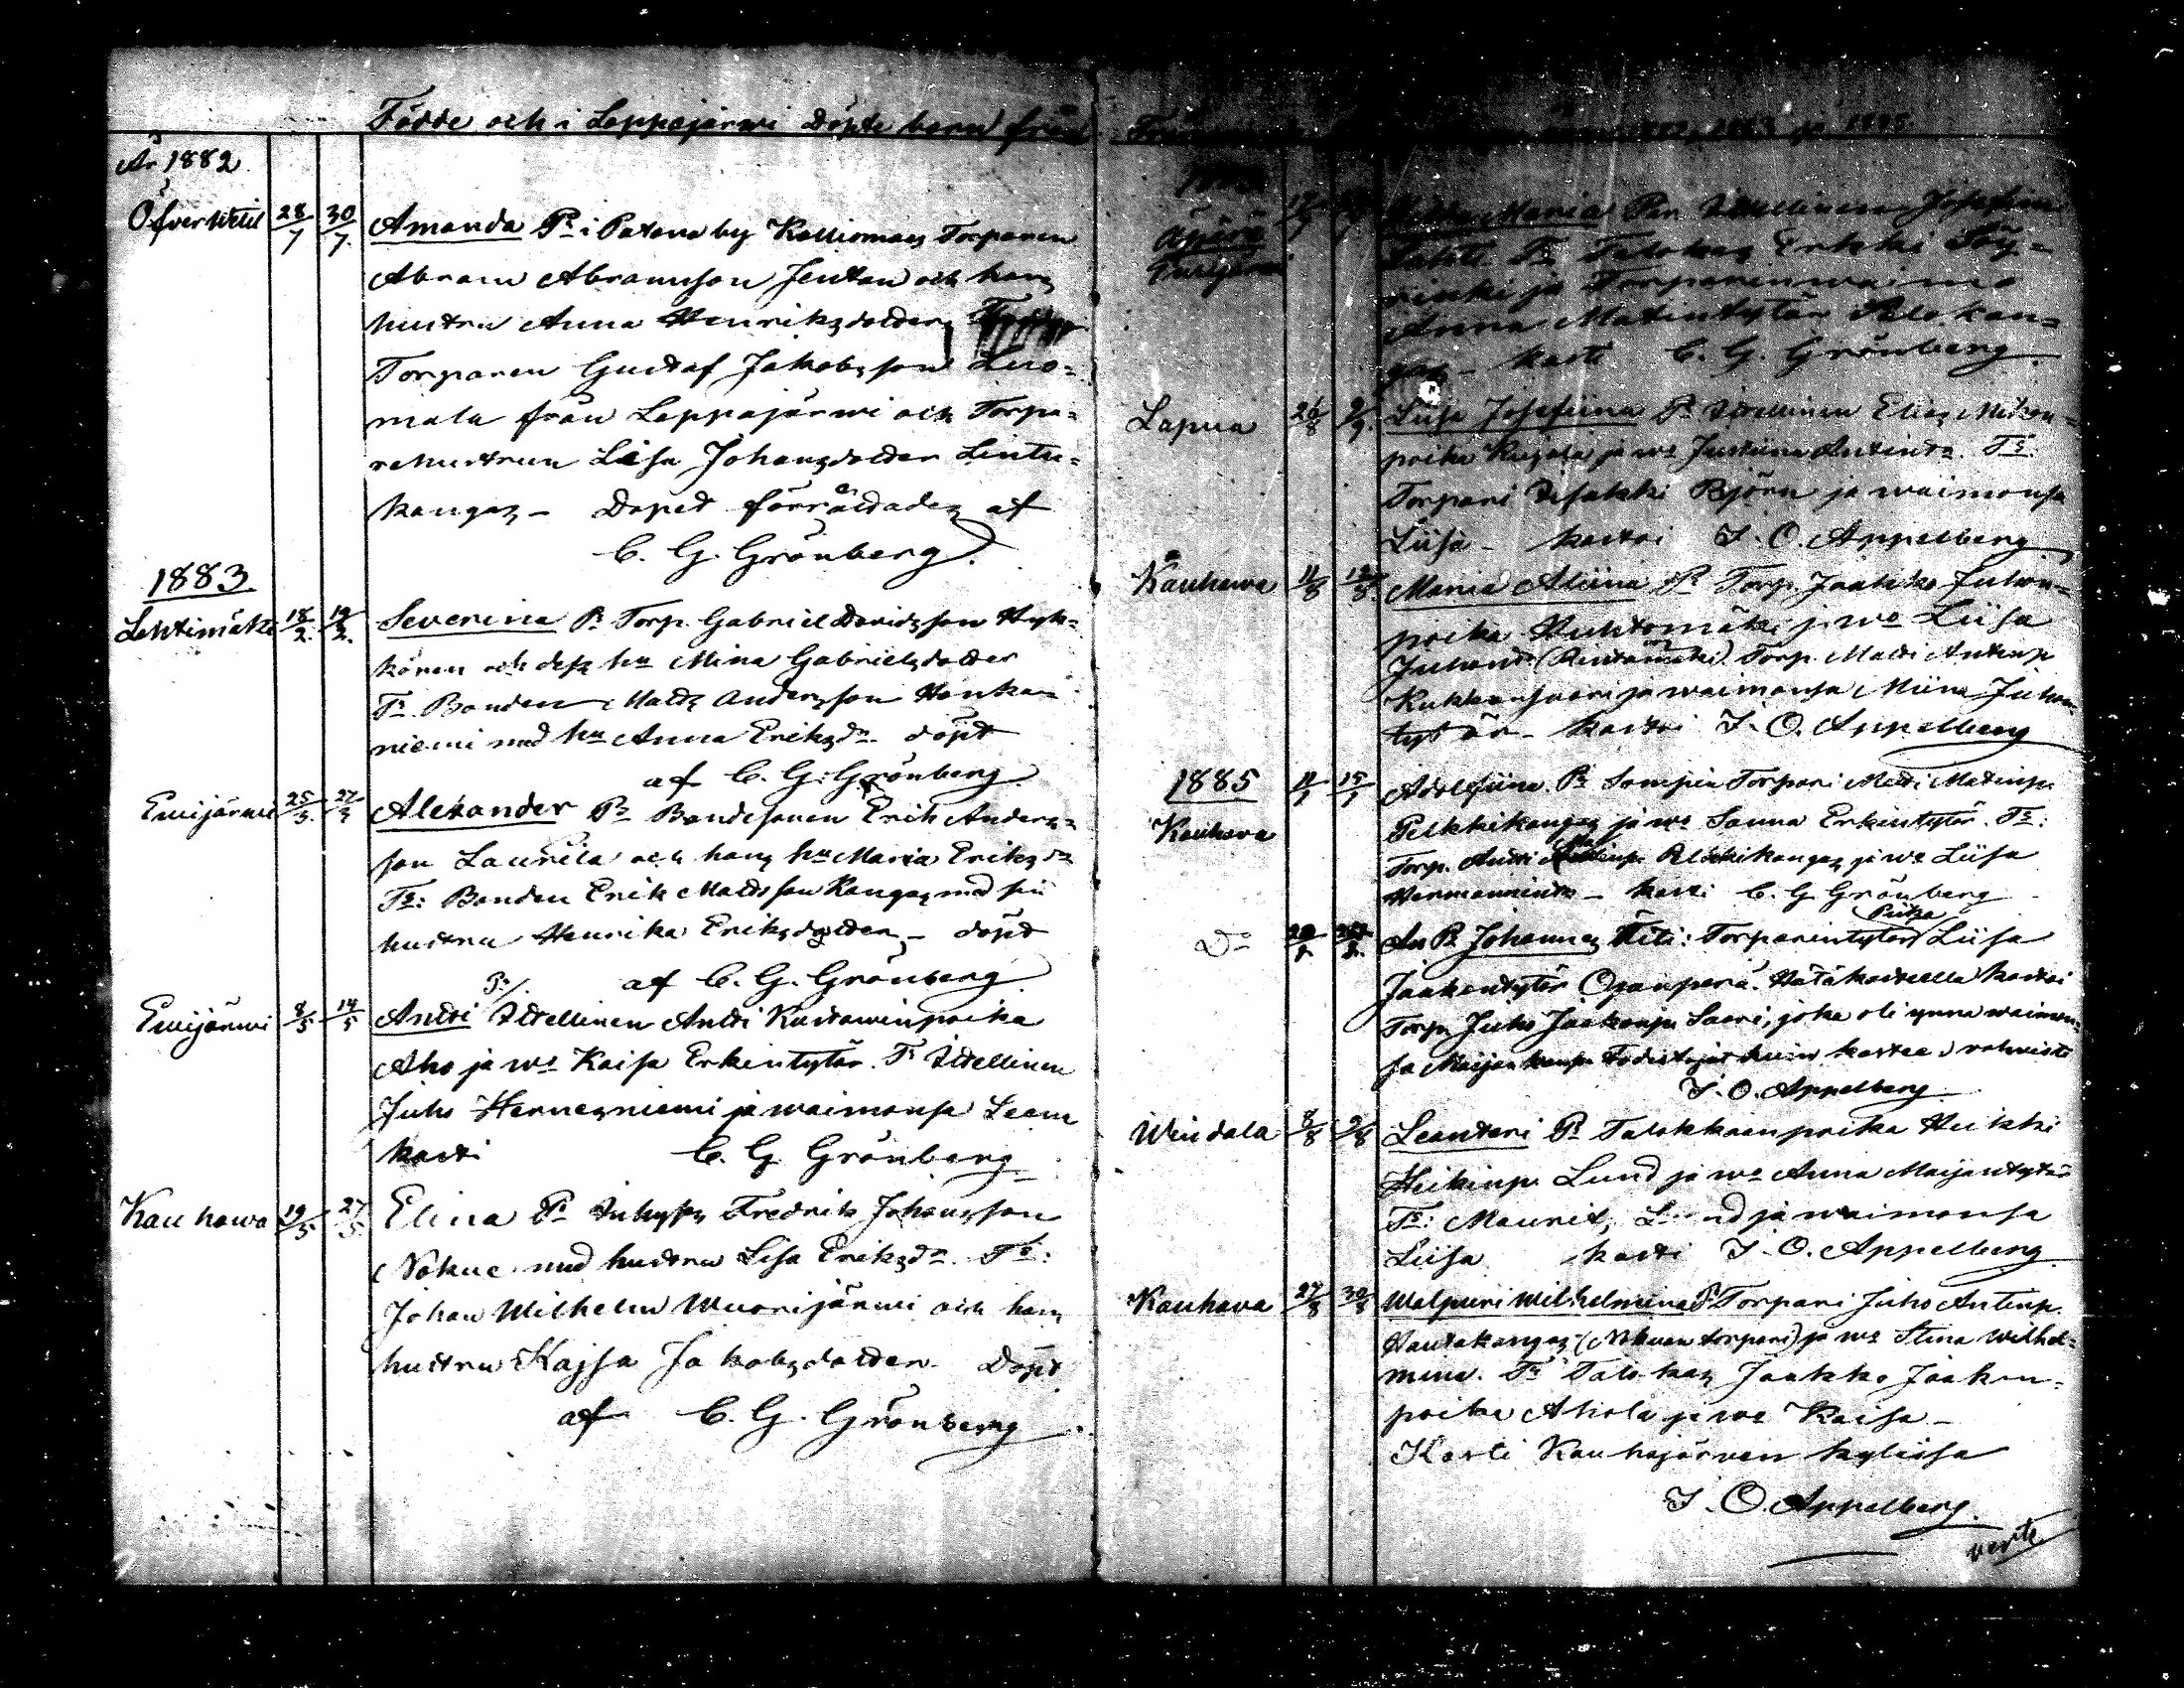 Födde och i Lappajärwi Döpte barn från
År 1882
Öfvervetil 28/7 30/7 Amanda Pr i Patana by Kalliomaas Torparen
Abram Abramsson Jentan och hans
hustru Anna Henriksdotter,
Torparen Gustaf Jakobsson Luo=
mala från Lappajärwi och Torpa=
rehustrun Lisa Johansdotter Lintu=
kangas – Dopet förrättades af
C. G. Grönberg.
1883
Lehtimäki 18/2 19/2 Severina Pr Torp. Gabriel Davidsson Hyk=
könen och dess hu Mina Gabrielsdotter
Tr Bonden Matts Andersson Honka=
niemi med hu Anna Eriksdr döpt
af C. G. Grönberg
Evijärwi 25/3 27/3 Alexander Pr Bondesonen Erik Anders=
son Laurila och hans hu Maria Eriksdr
Tr: Bonden Erik Mattsson Kangas med sin
hustru Henrika Eriksdotter – döpt
af C. G. Grönberg
Evijärwi 8/5 14/5 Antti Pr Itsellinen Antti Kustawinpoika
Aho ja wo Kaisa Erkintytär. Tr Itsellinen
Juho Hernesniemi ja waimonsa Leena
kasti C. G. Grönberg
Kauhawa 19/5 27/5 Elina Pr Inhyses Fredrik Johansson
Nokua med hustru Lisa Eriksdr Tr:
Johan Wilhelm Wuorijärwi och hans
hustru Kajsa Jakobsdotter. Döpt
af C. G. Grönberg.
ja 1885
Äpärä Evijärwi Maria Itsellinen Josefiina
Lahti Tr Talokas Erkki Söy=
rinki ja Torparinwaimo
Anna Matintytär Palokan=
gas – kasti C. G. Grönberg
Lapua 26/8 2/9 Liisa Josefiina Pr Itsellinen Elias Mikon=
poika Kujala ja wo Justiina Antintr. Tr:
Torpari Iisakki Björn ja waimonsa
Liisa – kastoi J. O. Appelberg
Kauhawa 11/8 Maria Aliina Pr Torp. Jaakko Juhon=
poika Huhtamäki ja wo Liisa
Juhontr (Rintamäki) Torp. Matti Antinp.
Kukkonsaari ja waimonsa Miina Juhon=
tytär – kastoi J. O. Appelberg
1885
Kauhava 11/7 15/7 Adolfiina Pr Torpari Matti Matinp.
Pelkkikangas ja wo Sanna Erkintytär. Tr:
Torp. Antti Pelkkikangas ja wo Liisa
Hermannintr – kasti C. G. Grönberg
Do Au Pr Johannes Äiti: Torparintytär Piika Liisa
Jaakontytär Ojanperä. Hätäkasteella kastoi
Torp. Juho Jaakonp. Saari, joka oli ynnä waimon=
sa Maijan kanssa todistajat kasteen vahvisti
J. O. Appelberg
Windala 8/8 9/8 Leanteri Pr Talokkaanpoika Heikki
Heikinp. Lund ja wo Anna Maijantytär
Tr: Maurits Lund ja waimonsa
Liisa kasti J. O. Appelberg
Kauhava 27/8 30/8 Walpuri Wilhelmina Pr Torpari Juho Antinp.
Hautakangas (Nokuan torpari) ja wo Stina Wilhel=
mina. Tr Talokas Jaakko Jaakon=
poika Ahola ja wo Kaisa –
Kasti Kauhajärven kylässä
J. O. Appelberg.
verte